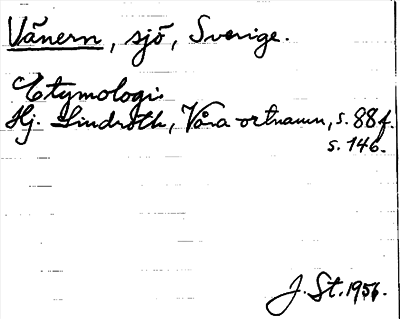 Vänern, sjö, Sverige.
Etymologi.
Hj. Lindroth, Våra ortnamn, s. 88 f.
s. 146.
J. St. 1956.